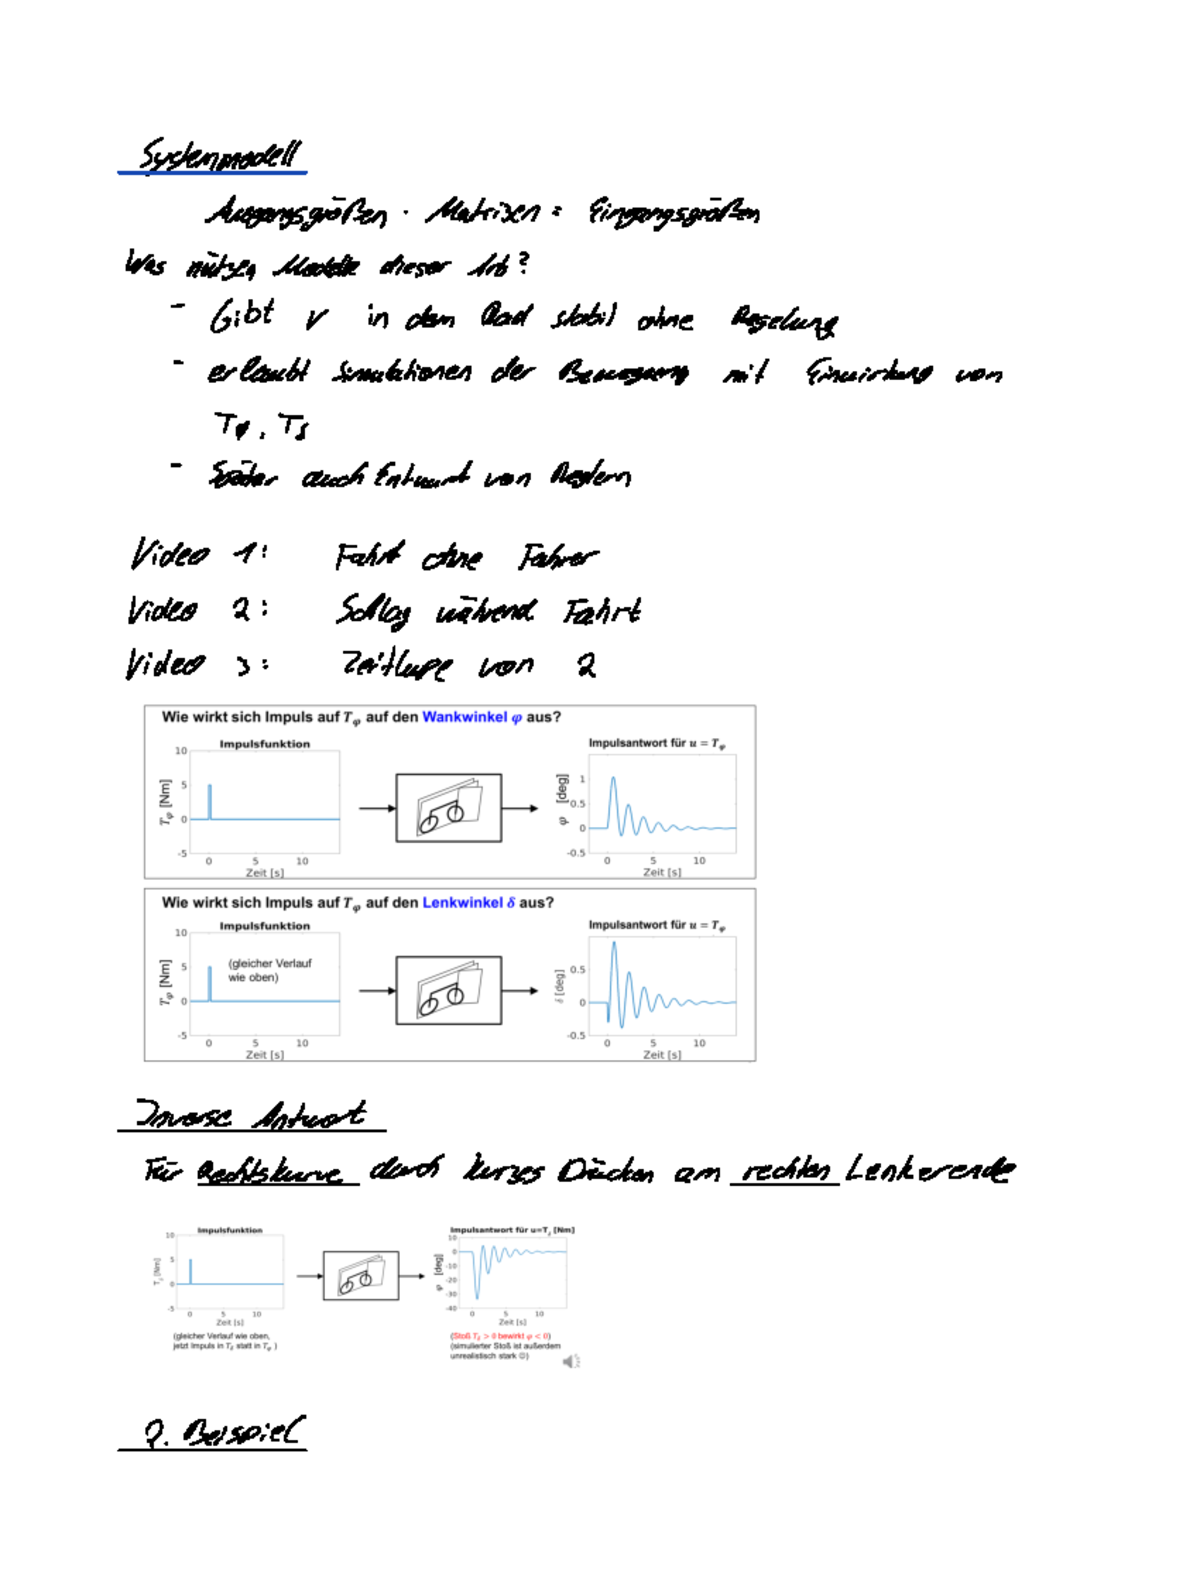 Systemmodell
Ausgangsgrößen · Matrizen = Eingangsgrößen
Was nützen Modelle dieser Art?
- Gibt v in dem Rad stabil ohne Regelung
- erlaubt Simulationen der Bewegung mit Einwirkung von
Tφ, Tδ
- Später auch Entwurf von Reglern
Video 1: Fahrt ohne Fahrer
Video 2: Schlag während Fahrt
Video 3: Zeitlupe von 2
Wie wirkt sich Impuls auf Tφ auf den Wankwinkel φ aus?
Impulsfunktion
Impulsantwort für u = Tφ
Tφ [Nm]
10
5
0
-5
0 5 10
Zeit [s]
φ [deg]
1
0.5
0
-0.5
0 5 10
Zeit [s]
Wie wirkt sich Impuls auf Tφ auf den Lenkwinkel δ aus?
Impulsfunktion
Impulsantwort für u = Tφ
Tφ [Nm]
10
5
0
-5
(gleicher Verlauf
wie oben)
0 5 10
Zeit [s]
δ [deg]
0.5
0
-0.5
0 5 10
Zeit [s]
Inverse Antwort
Für Rechtskurve durch kurzes Drücken am rechten Lenkerende
Impulsfunktion
Impulsantwort für u=Tδ [Nm]
Tδ [Nm]
10
5
0
-5
0 5 10
Zeit [s]
φ [deg]
10
0
-10
-20
-30
-40
0 5 10
Zeit [s]
(gleicher Verlauf wie oben,
jetzt Impuls in Tδ statt in Tφ )
(Stoß Tδ > 0 bewirkt φ < 0)
(simulierter Stoß ist außerdem
unrealistisch stark ☺)
2. Beispiel